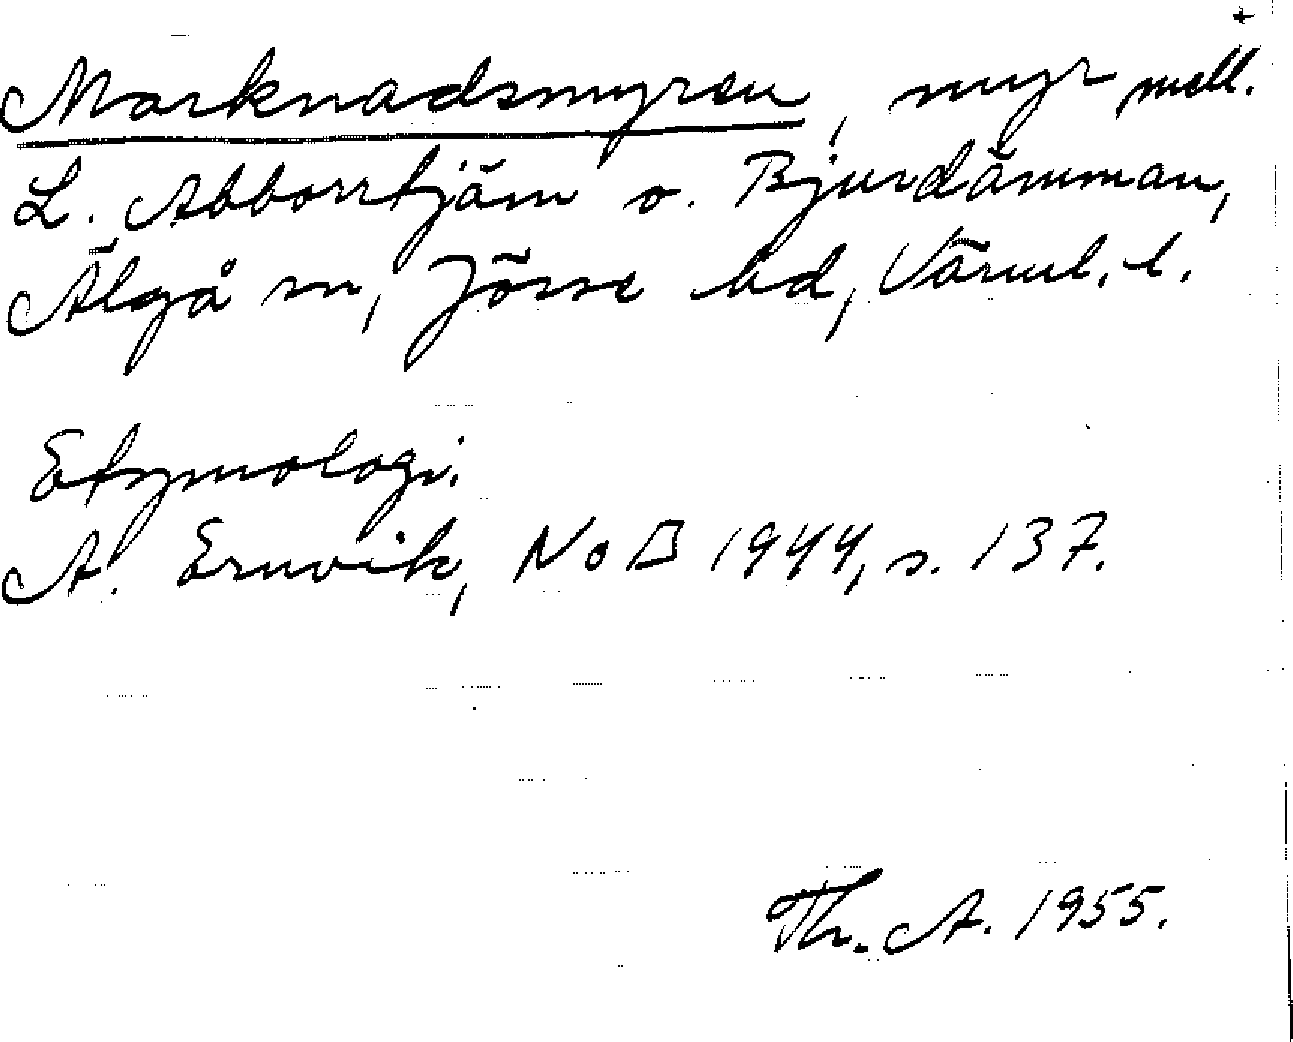 +
Marknadsmyren, myr mell.
L. Abborrtjärn o. Bjurdammen,
Älgå sn, Jösse hd, Värml. l.
Etymologi.
A. Ernvik, NoB 1944, s. 137.
Th. A. 1955.